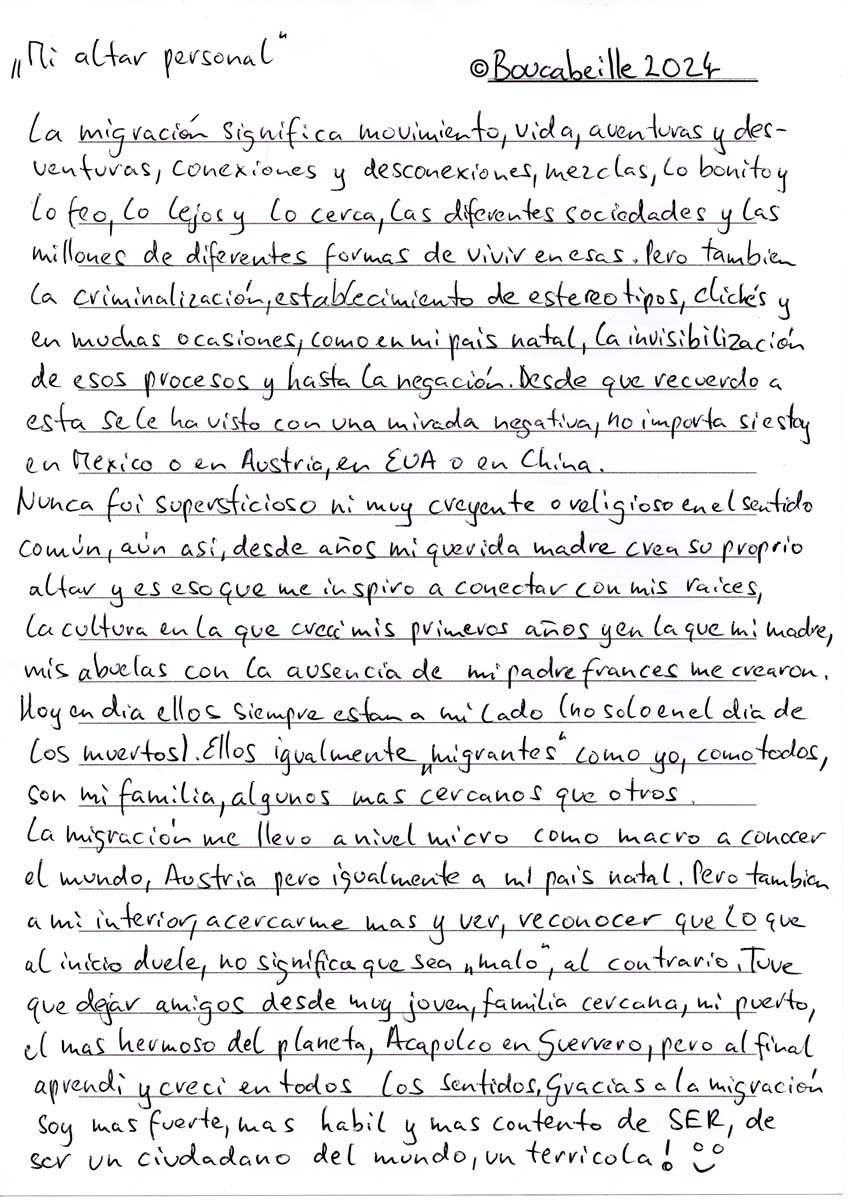 „Mi altar personal“
©Boucabeille 2024
La migración significa movimiento, vida, aventuras y des-
venturas, conexiones y desconexiones, mezclas, lo bonito y
lo feo, lo lejos y lo cerca, las diferentes sociedades y las
millones de diferentes formas de vivir en esas. Pero tambien
la criminalización, establecimiento de estereotipos, clichés y
en muchas ocasiones, como en mi pais natal, la invisibilización
de esos procesos y hasta la negación. Desde que recuerdo a
esta se le ha visto con una mirada negativa, no importa si estoy
en Mexico o en Austria, en EUA o en China.
Nunca fui supersticioso ni muy creyente o religioso en el sentido
común, aún así, desde años mi querida madre crea su proprio
altar y es eso que me inspiro a conectar con mis raices,
la cultura en la que creci mis primeros años y en la que mi madre,
mis abuelas con la ausencia de mi padre frances me crearon.
Hoy en dia ellos siempre estan a mi lado (no solo en el dia de
los muertos). Ellos igualmente „migrantes“ como yo, como todos,
son mi familia, algunos mas cercanos que otros.
La migración me llevo a nivel micro como macro a conocer
el mundo, Austria pero igualmente a mi pais natal. Pero tambien
a mi interior, acercarme mas y ver, reconocer que lo que
al inicio duele, no significa que sea „malo“, al contrario. Tuve
que dejar amigos desde muy joven, familia cercana, mi puerto,
el mas hermoso del planeta, Acapulco en Guerrero, pero al final
aprendi y creci en todos los sentidos. Gracias a la migración
soy mas fuerte, mas habil y mas contento de SER, de
ser un ciudadano del mundo, un terricola!